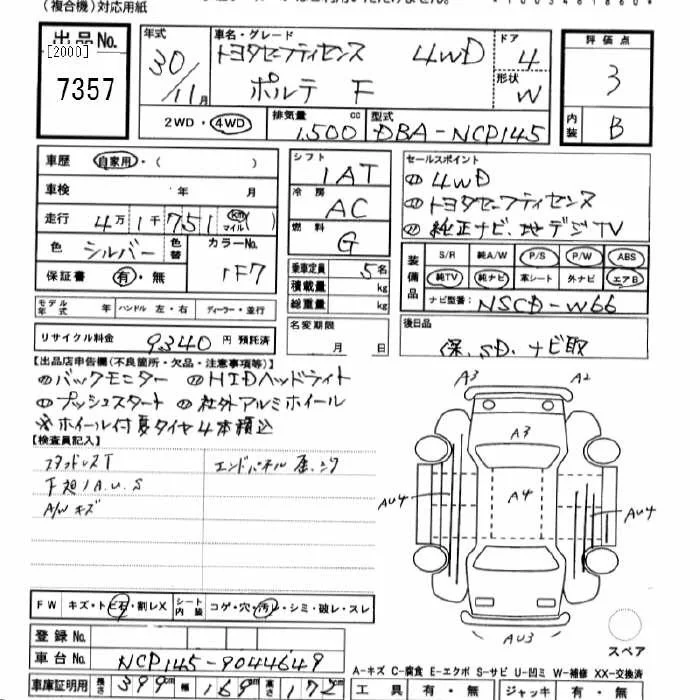 (複合機)対応用紙
出品No. [2000] 7357
年式 30/11月
車名・グレード トヨタセーフティセンス 4WD ポルテ F
ドア 4
形状 W
評価点 3
内装 B
2WD・4WD
排気量 1,500 cc
型式 DBA-NCP145
車歴 自家用・( )
車検 年 月
走行 4万1千751(km マイル)
色 シルバー 色替 カラーNo. 1F7
保証書 有・無
シフト 1AT
冷房 AC
燃料 G
乗車定員 5名
積載量 kg
総重量 kg
セールスポイント
4WD
トヨタセーフティセンス
純正ナビ、地デジTV
装備品 S/R 純A/W P/S P/W ABS
純TV 純ナビ 革シート 外ナビ エアB
ナビ型番: NSCD-W66
モデル年式 年 ハンドル 左・右 ディーラー・並行
名変期限 月 日
後日品
保、SD、ナビ取
リサイクル料金 9340 円 預託済
【出品店申告欄(不良箇所・欠品・注意事項等)】
バックモニター HIDヘッドライト
プッシュスタート 社外アルミホイール
※ホイール付夏タイヤ4本積込
【検査員記入】
スタッドレスT エンドパネル
A.U.S
A/W キズ
A3 A2
A3
A4
AU4 AU4
AU3
スペア
FW キズ・トビ石・割レX シート内装 コゲ・穴・汚レ・シミ・破レ・スレ
登録No.
車台No. NCP145-9044649
車庫証明用 長さ 399cm 幅 169cm 高さ 172cm
A-キズ C-腐食 E-エクボ S-サビ U-凹ミ W-補修 XX-交換済
工具 有・無 ジャッキ 有・無